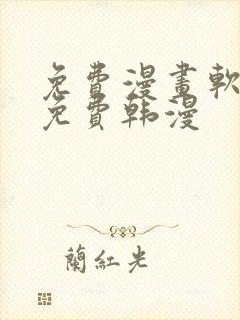 免費漫畫軟
免費韩漫
蘭紅光